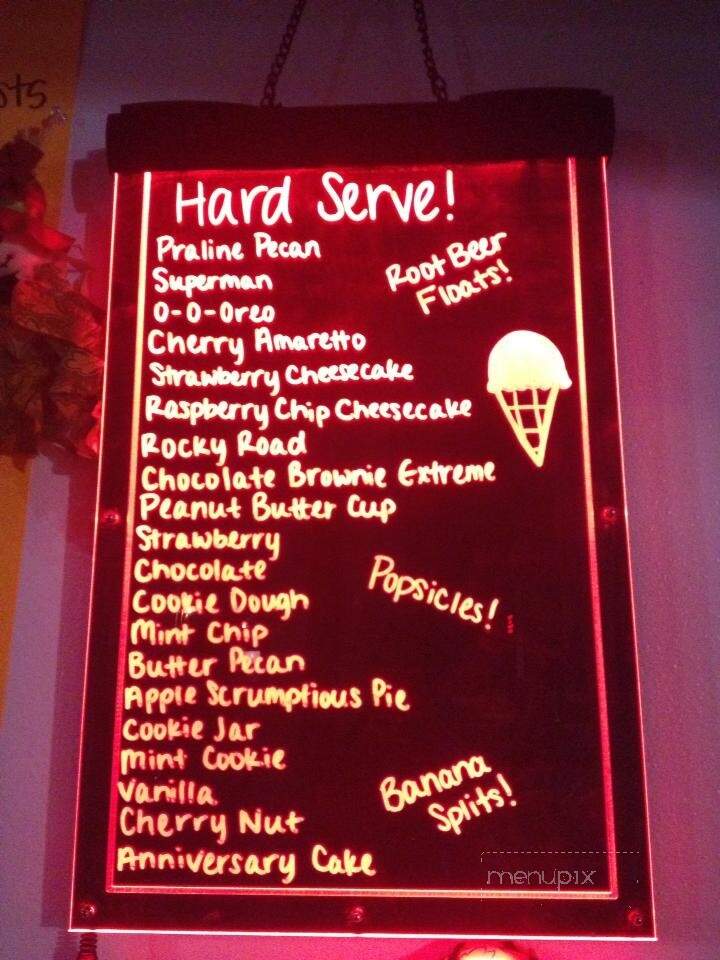 Hard Serve!
Praline Pecan
Superman
O-O-Oreo
Cherry Amaretto
Strawberry Cheesecake
Raspberry Chip Cheesecake
Rocky Road
Chocolate Brownie Extreme
Peanut Butter Cup
Strawberry
Chocolate
Cookie Dough
Mint Chip
Butter Pecan
Apple Scrumptious Pie
Cookie Jar
Mint Cookie
Vanilla
Cherry Nut
Anniversary Cake
Root Beer
Floats!
Popsicles!
Banana
Splits!
menupix